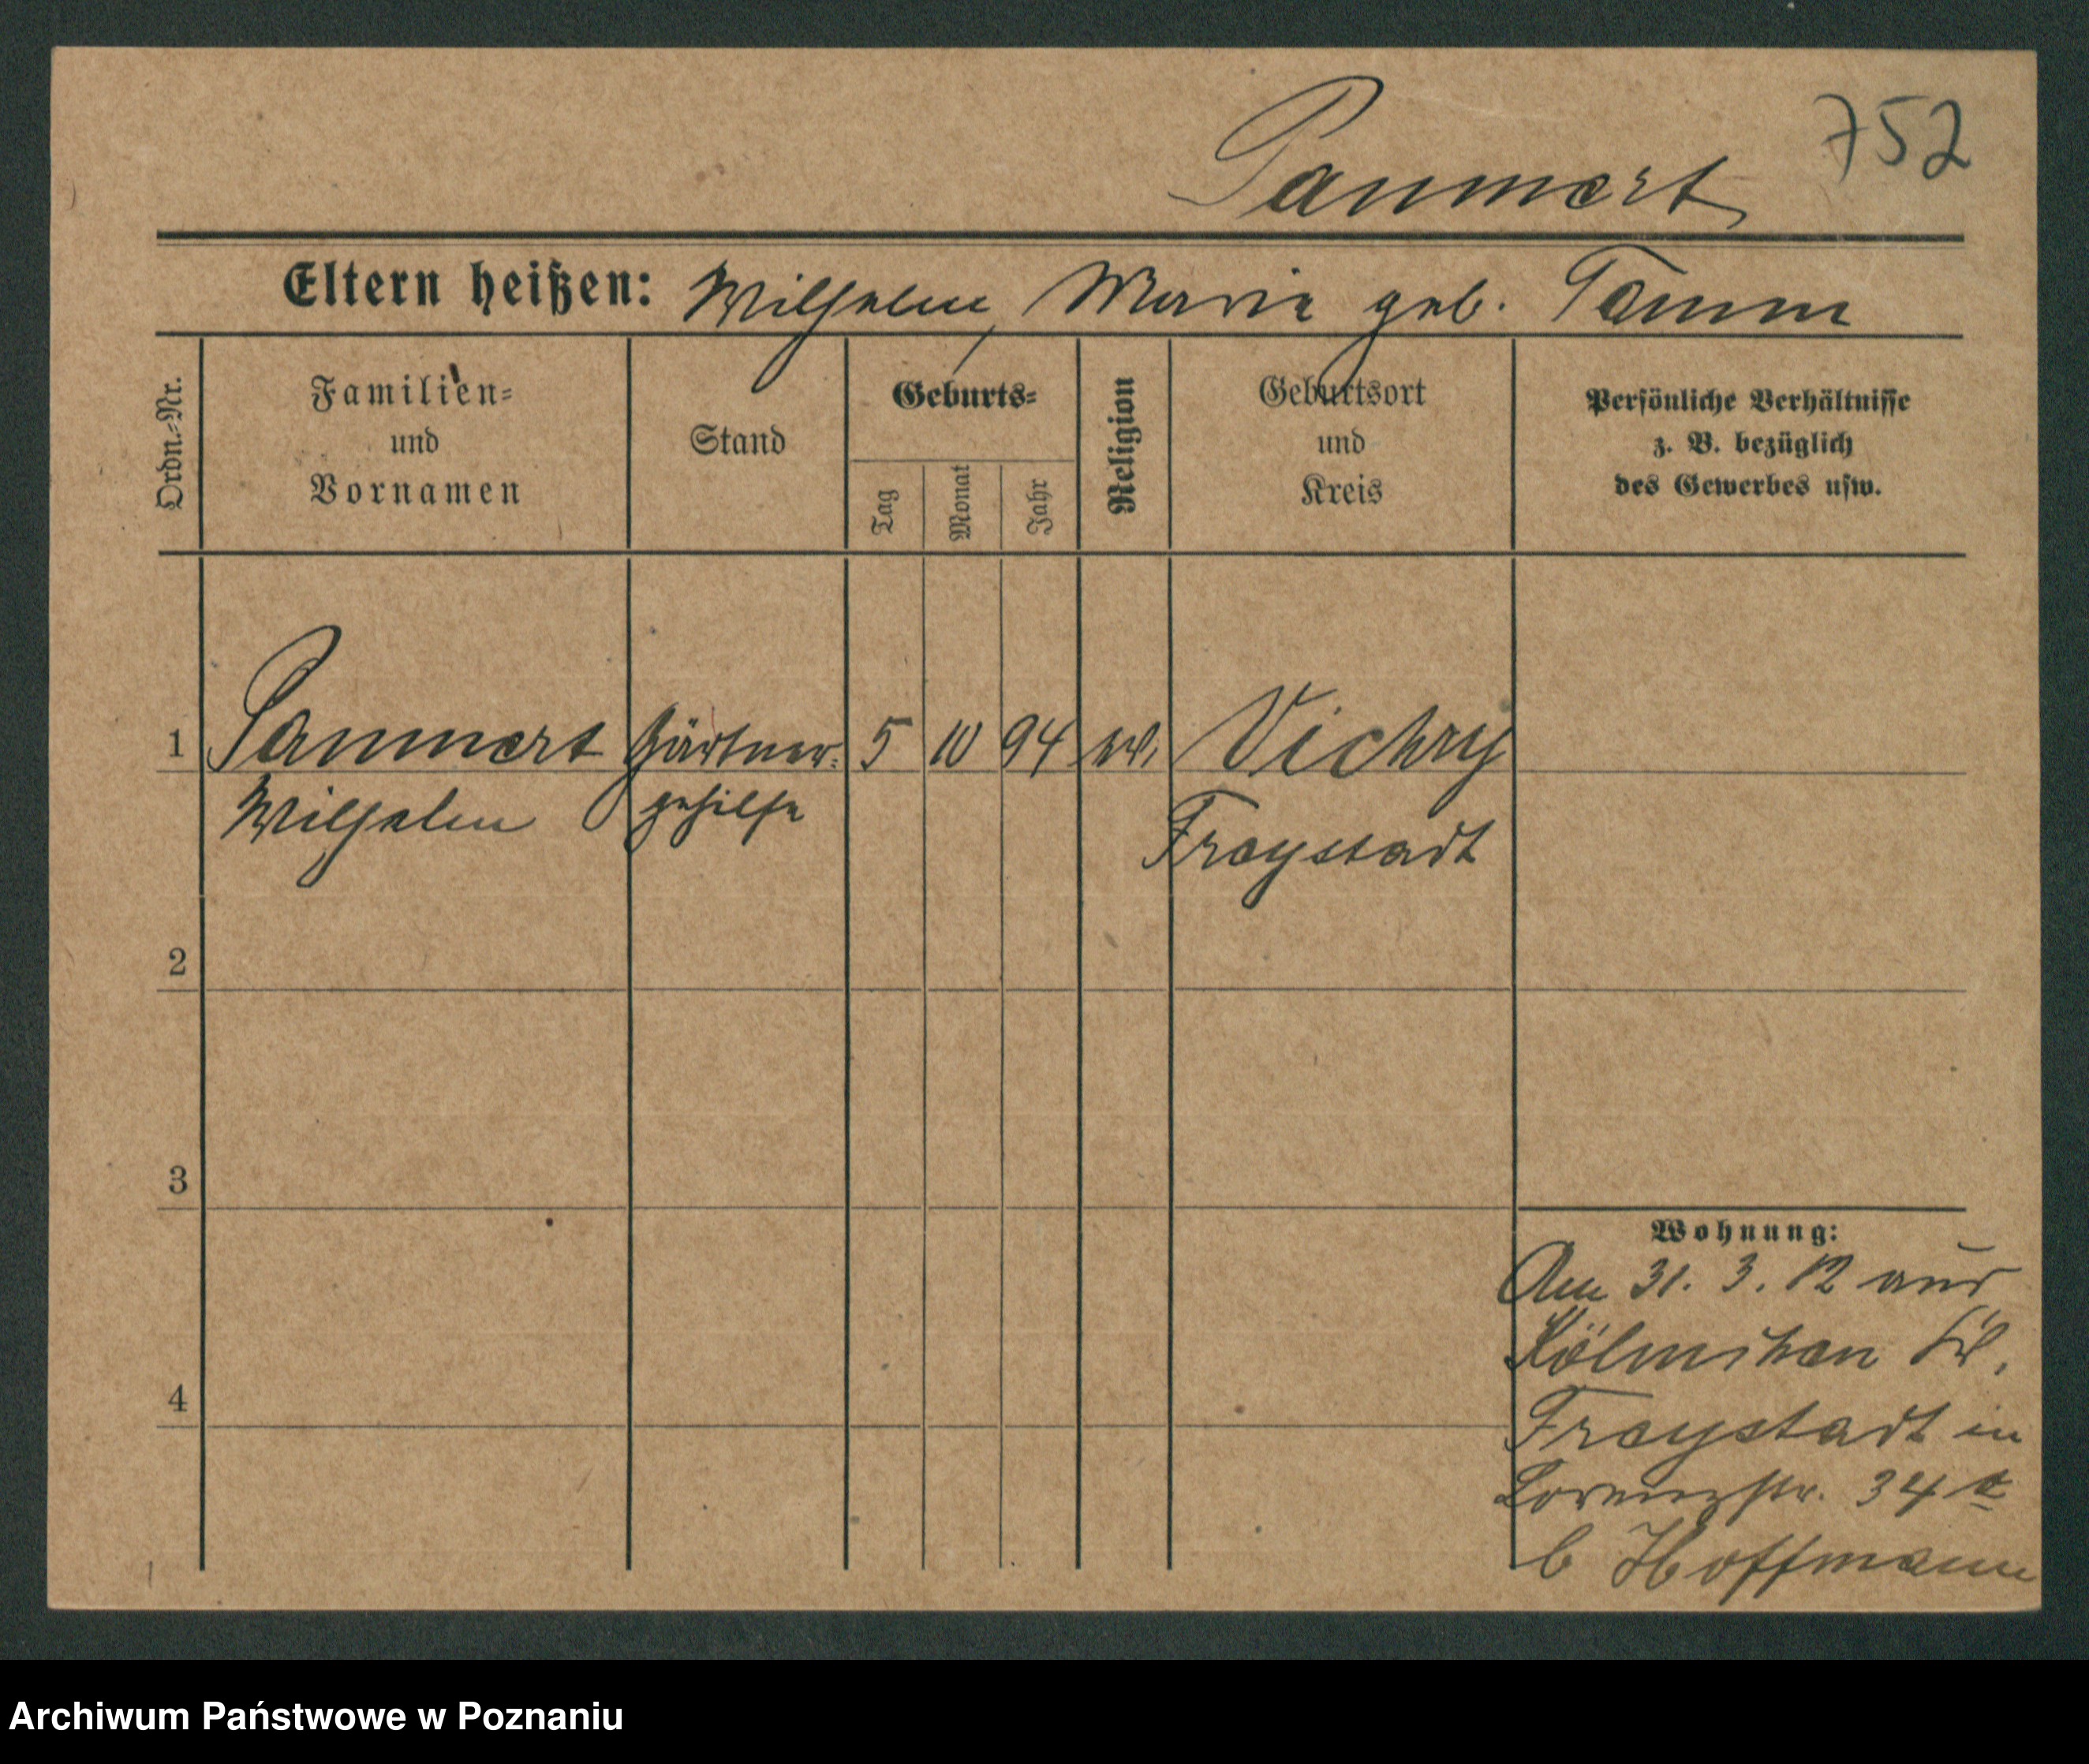 752
Pammert
Eltern heißen: Wilhelm, Marie geb. Tamm
Ordn.-Nr.
Familien-
und
Vornamen
Stand
Geburts-
Tag
Monat
Jahr
Religion
Geburtsort
und
Kreis
Persönliche Verhältnisse
z. B. bezüglich
des Gewerbes usw.
1 Pammert Gärtner- 5 10 94 ev.
Wilhelm gehilfe
Freystadt
2
3
4
Wohnung:
Am 31. 3. 12 aus
Kr.
Freystadt in
34 a
b Hoffmann
Archiwum Państwowe w Poznaniu